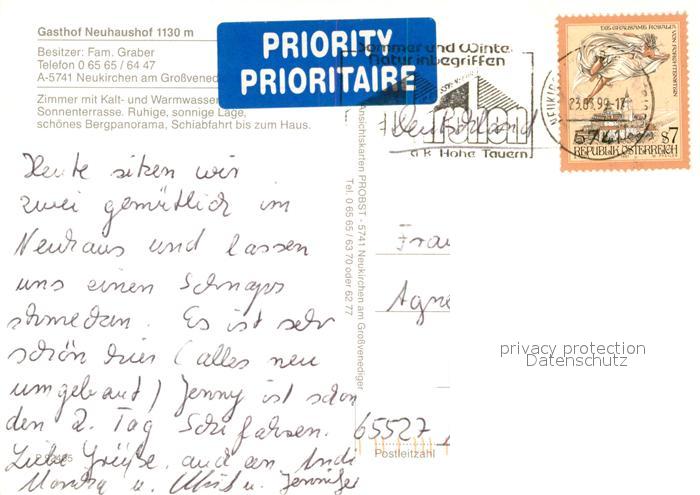 Gasthof Neuhaushof 1130 m
Besitzer: Fam. Graber
Telefon 0 65 65 / 64 47
A-5741 Neukirchen am Großvened
Zimmer mit Kalt- und Warmwasser
Sonnenterrasse. Ruhige, sonnige Lage,
schönes Bergpanorama, Schiabfahrt bis zum Haus.
PRIORITY
PRIORITAIRE
Sommer und Winte
Natur inbegriffen
a.k. Hohe Tauern
23.03.99-17
5741
DIE GRAUSAME ROSALIA VON FORCHTENSTEIN
S7
REPUBLIK ÖSTERREICH
Deutschland
Heute sitzen wir
zwei gemütlich im
Neuhaus und lassen
uns einen Schnaps
schmecken. Es ist sehr
schön hier (alles neu
umgebaut) Jenny ist schon
den 2. Tag Schi fahren.
Liebe Grüße, auch an
Monika u. u. Jennifer
Ansichtskarten PROBST - 5741 Neukirchen am Großvenediger
Tel. 0 65 65 / 63 70 oder 62 77
Frau
Agne
65527
Postleitzahl
privacy protection
Datenschutz